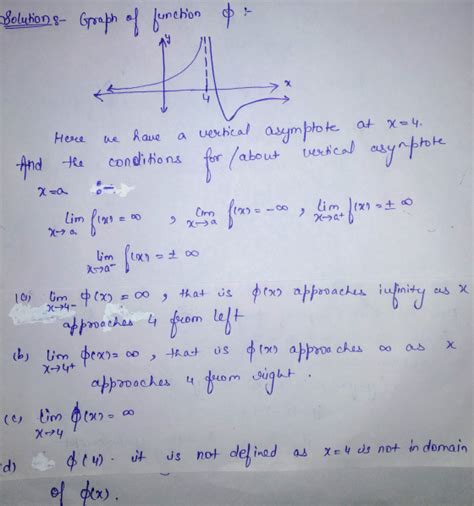 Solution:- Graph of function ϕ :-
y
x
4
Here we have a vertical asymptote at x=4.
And the conditions for/about vertical asymptote
x=a :-
lim x→a f(x) = ∞ , lim x→a f(x) = -∞ , lim x→a+ f(x) = ± ∞
lim x→a- f(x) = ± ∞
(a) lim x→4- ϕ(x) = ∞ , that is ϕ(x) approaches infinity as x
approaches 4 from left
(b) lim x→4+ ϕ(x) = ∞ , that is ϕ(x) approaches ∞ as x
approaches 4 from right.
(c) lim x→4 ϕ(x) = ∞
d) ϕ(4). it is not defined as x=4 is not in domain
of ϕ(x).